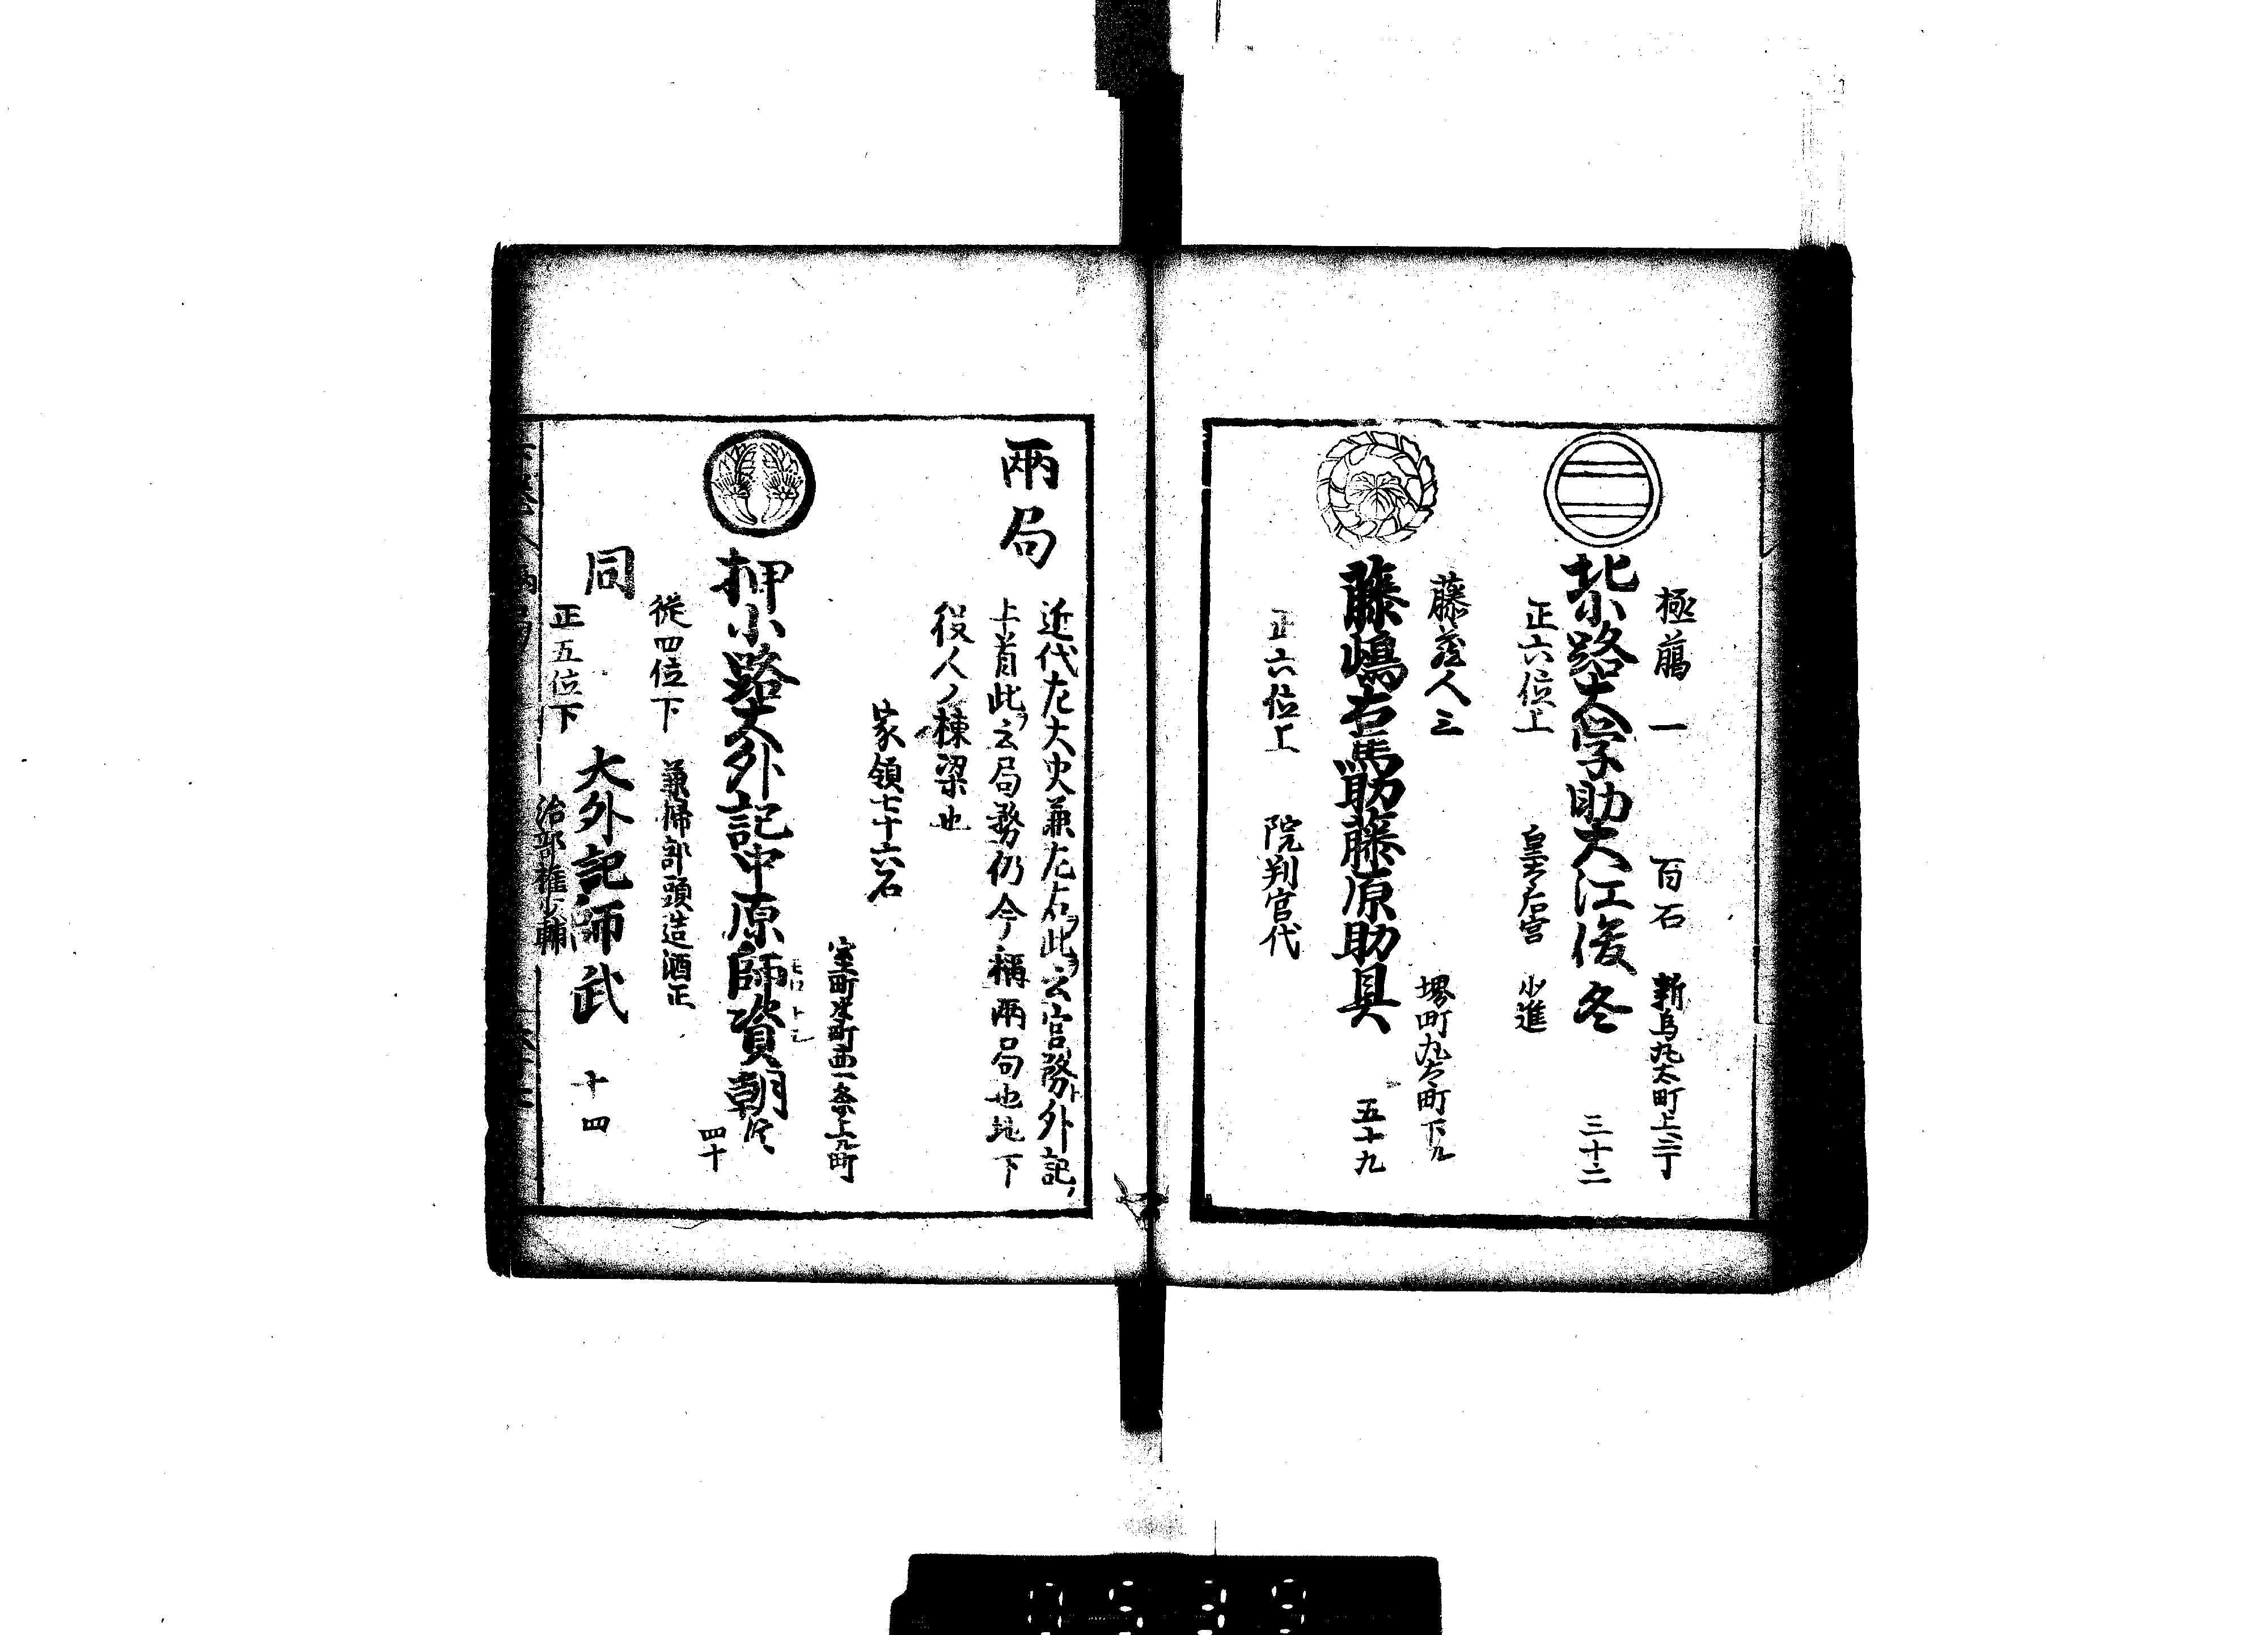 極﨟 一 百石 新烏丸太町上ル二丁
北小路大学助大江俊冬 三十二
正六位上 皇太后宮 少進
藤蔵人三 堺町丸太町下ル
藤嶋右馬助藤原助具 五十九
正六位上 院判官代
兩局
近代左大史兼左右此ヲ云官務ト外記ノ
上首此ヲ云局務仍今稱兩局也地下
役人ノ棟梁也
家領七十六石
室町
西一条上ル町
押小路大外記中原師資朝臣 四十
モロトシ
従四位下 兼掃部頭造酒正
同 大外記師武 十四
正五位下 治部権少輔